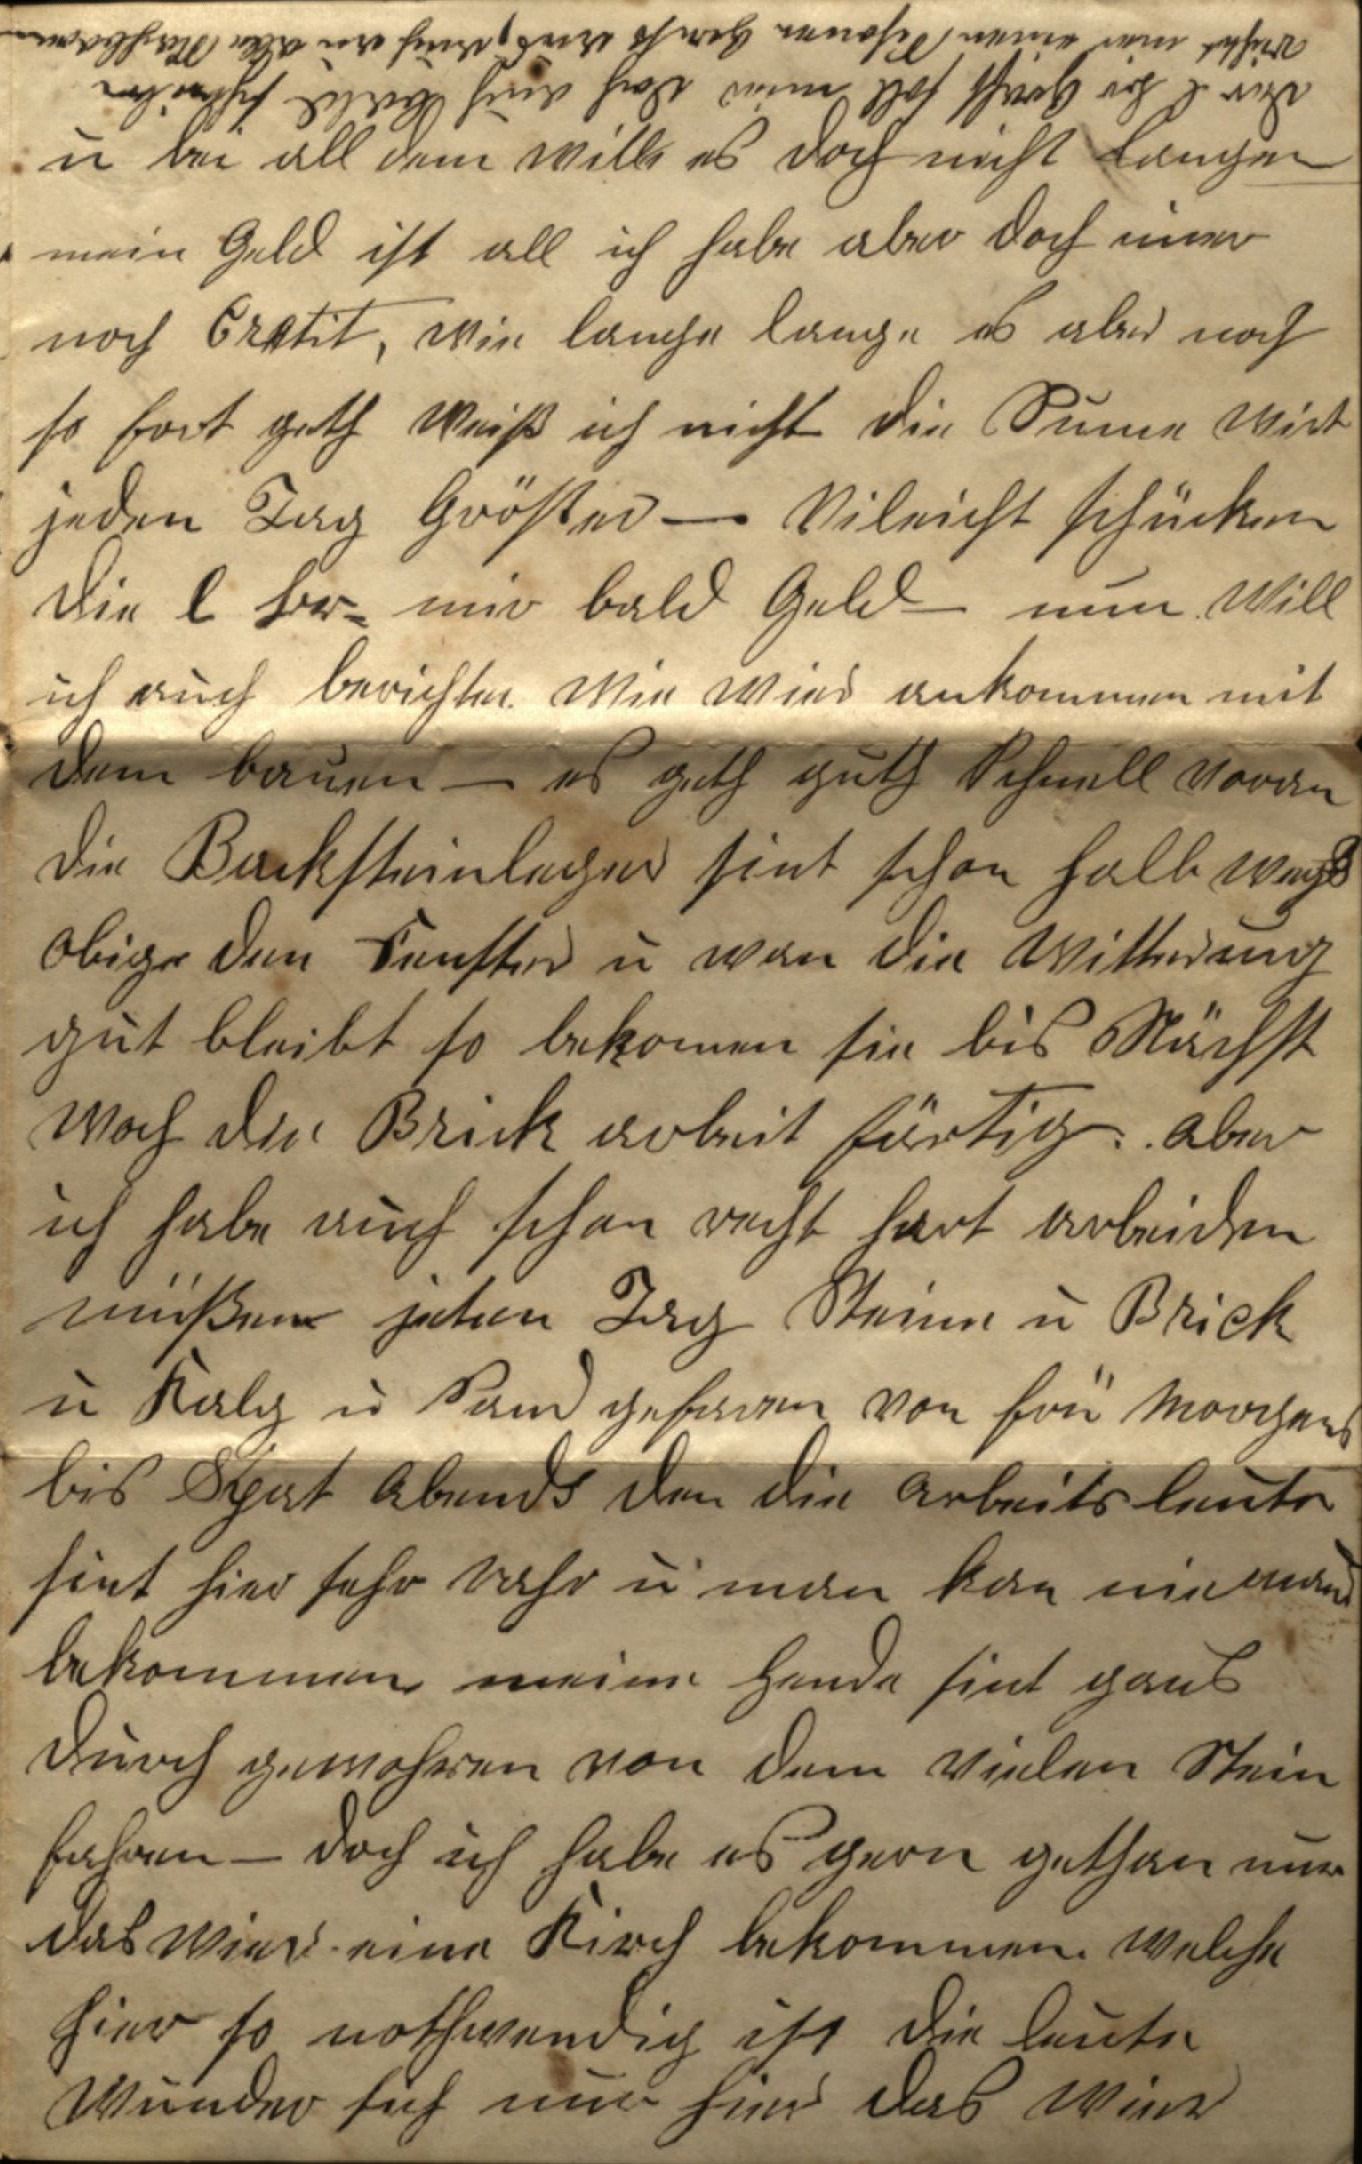 der l br Hersch soll mir doch auch bald schreiben
nicht nur einen Schonen Gruß und, auch an alle Nachbarn
u bei all dem will es doch nicht langen
mein Geld ist all ich habe aber doch imer
noch Cretit, wie lange lange es aber noch
so fort geth Weiß ich nicht die Sume Wirt
jeden Tag Größer — Vileicht schücken
die l br= mir bald Geld — nun will
ich auch berichten Wie Wier ankommen mit
dem bauen — es geth guth Schnell voran
die Backsteinleger sint schon halb wegs
obige den Fenster u wan die Witterung
gut bleibt so bekomen sie bis Nächst
Woch die Brick arbeit färtig. aber
ich habe auch schon recht hart arbeiden
müßen jeten Tag Steine u Brick
u Kalg u Sand gefaren von frü Morgens
bis Spat Abends den die Arbeitsleute
sint hier sehr rahr u man kan niemand
bekommen meine Hende sint gans
durch gewohren von dem vielen Stein
fahren — doch ich habe es gern gethan nur
das Wier eine Kirch bekommen welche
hier so nothwendig ist die leute
Wunder sich nur hier das Wier